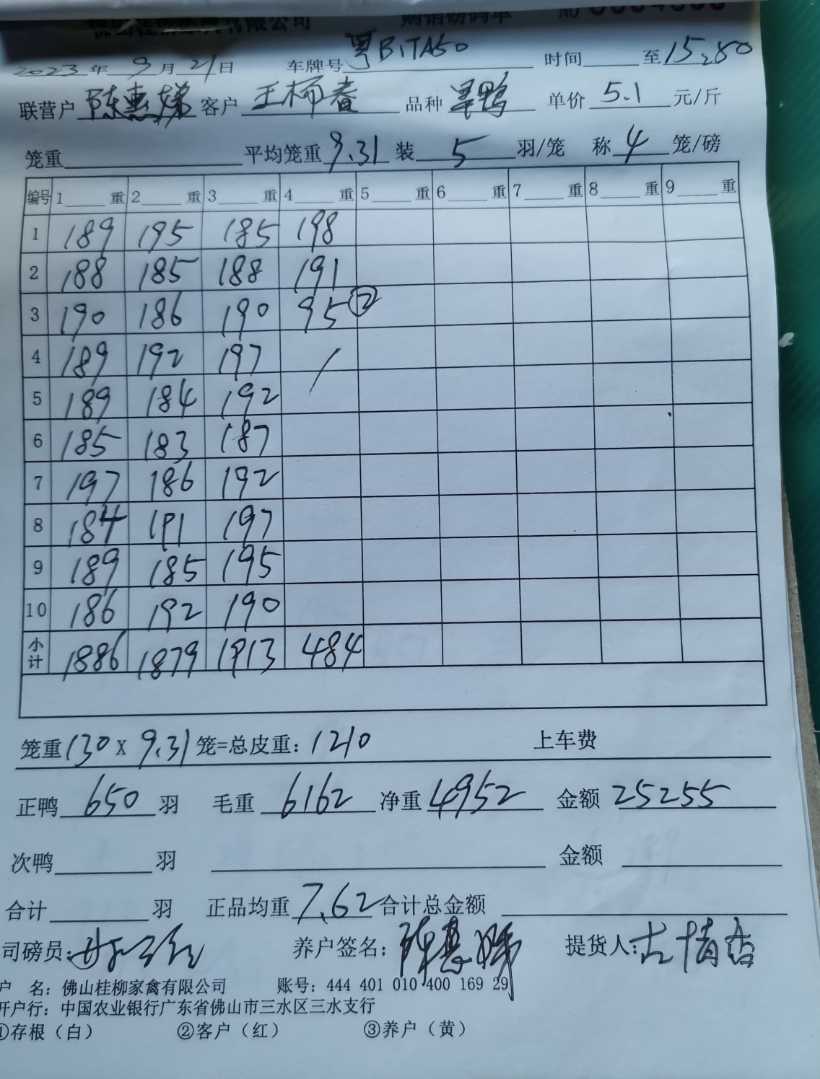 佛山桂柳家禽有限公司 购销磅码单 №
2023年9月21日 车牌号粤B1TA50 时间 至15:50
联营户 陈惠娣 客户 王杨春 品种 鸭 单价 5.1 元/斤
笼重 平均笼重9.31 装 5 羽/笼 称 4 笼/磅
编号 1 重 2 重 3 重 4 重 5 重 6 重 7 重 8 重 9 重
1 189 195 185 198
2 188 185 188 191
3 190 186 190 95②
4 189 192 197 /
5 189 184 192
6 185 183 187
7 197 186 192
8 184 191 197
9 189 185 195
10 186 192 190
小计 1886 1879 1913 484
笼重130X9.31笼=总皮重:1210 上车费
正鸭 650 羽 毛重 6162 净重4952 金额 25255
次鸭 羽 金额
合计 羽 正品均重7.62合计总金额
司磅员: 养户签名:陈惠娣 提货人:
户 名:佛山桂柳家禽有限公司 账号:444 401 010 400 169 29
开户行:中国农业银行广东省佛山市三水区三水支行
①存根(白) ②客户(红) ③养户(黄)